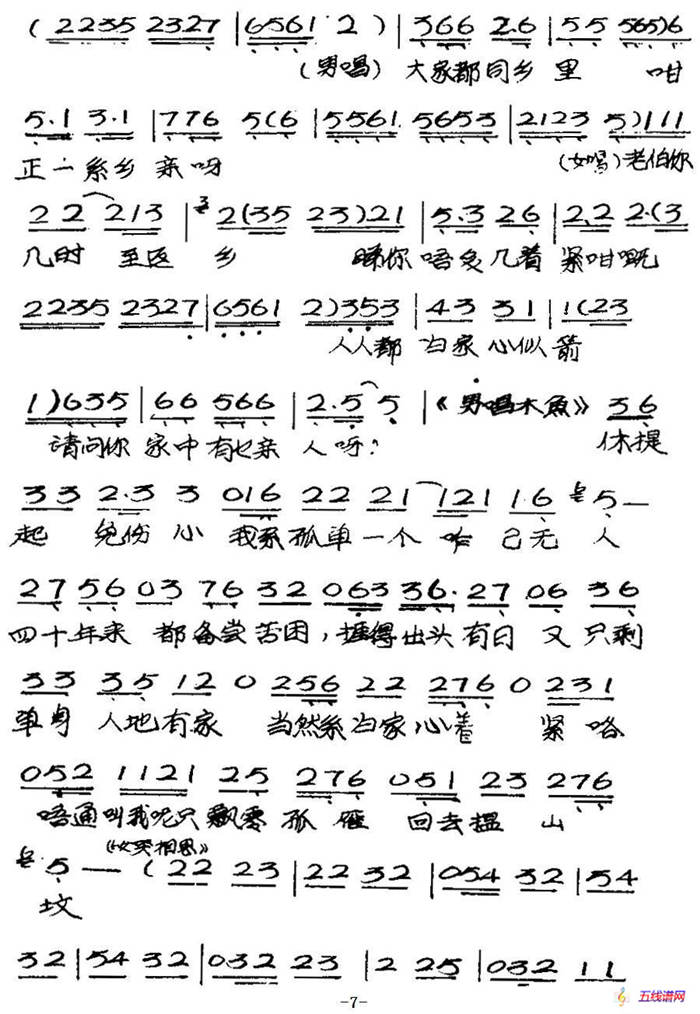 ( 2235 2327 | 6561 2 ) | 366 2.6 | 55 565) 6
(男唱) 大家都同乡里 咁
5.1 3.1 | 776 5(6 | 5561 5653 | 2123 5) 111
正一系乡亲呀 (女唱) 老伯你
22 213 | 3 2(35 23) 21 | 5.3 26 | 22 2.(3
几时至返乡 睇你唔多几着紧咁嘅
2235 2327 | 6561 2) 353 | 43 31 | 1(23
人人都为家心似箭
1) 635 | 66 566 | 2.5 5 | 《男唱木鱼》 36
请问你家中有乜亲人呀? 休提
33 2.3 3 016 22 21 121 1.6 5 —
起 伤心 我系孤单一个 咋己无人
27 56 03 76 32 063 36. 27 06 36
四十年来 都备尝苦困, 捱得出头有日 又只剩
33 35 12 0 256 22 276 0 231
单身 人地有家 当然系为家心着 紧咯
052 1121 25 276 051 23 276
唔通叫我呢只飘零孤雁 回去揾山
《女哭相思》
5 — ( 22 23 | 22 32 | 054 32 | 54
坟
32 | 54 32 | 032 23 | 2 25 | 032 11
-7-
五线谱网